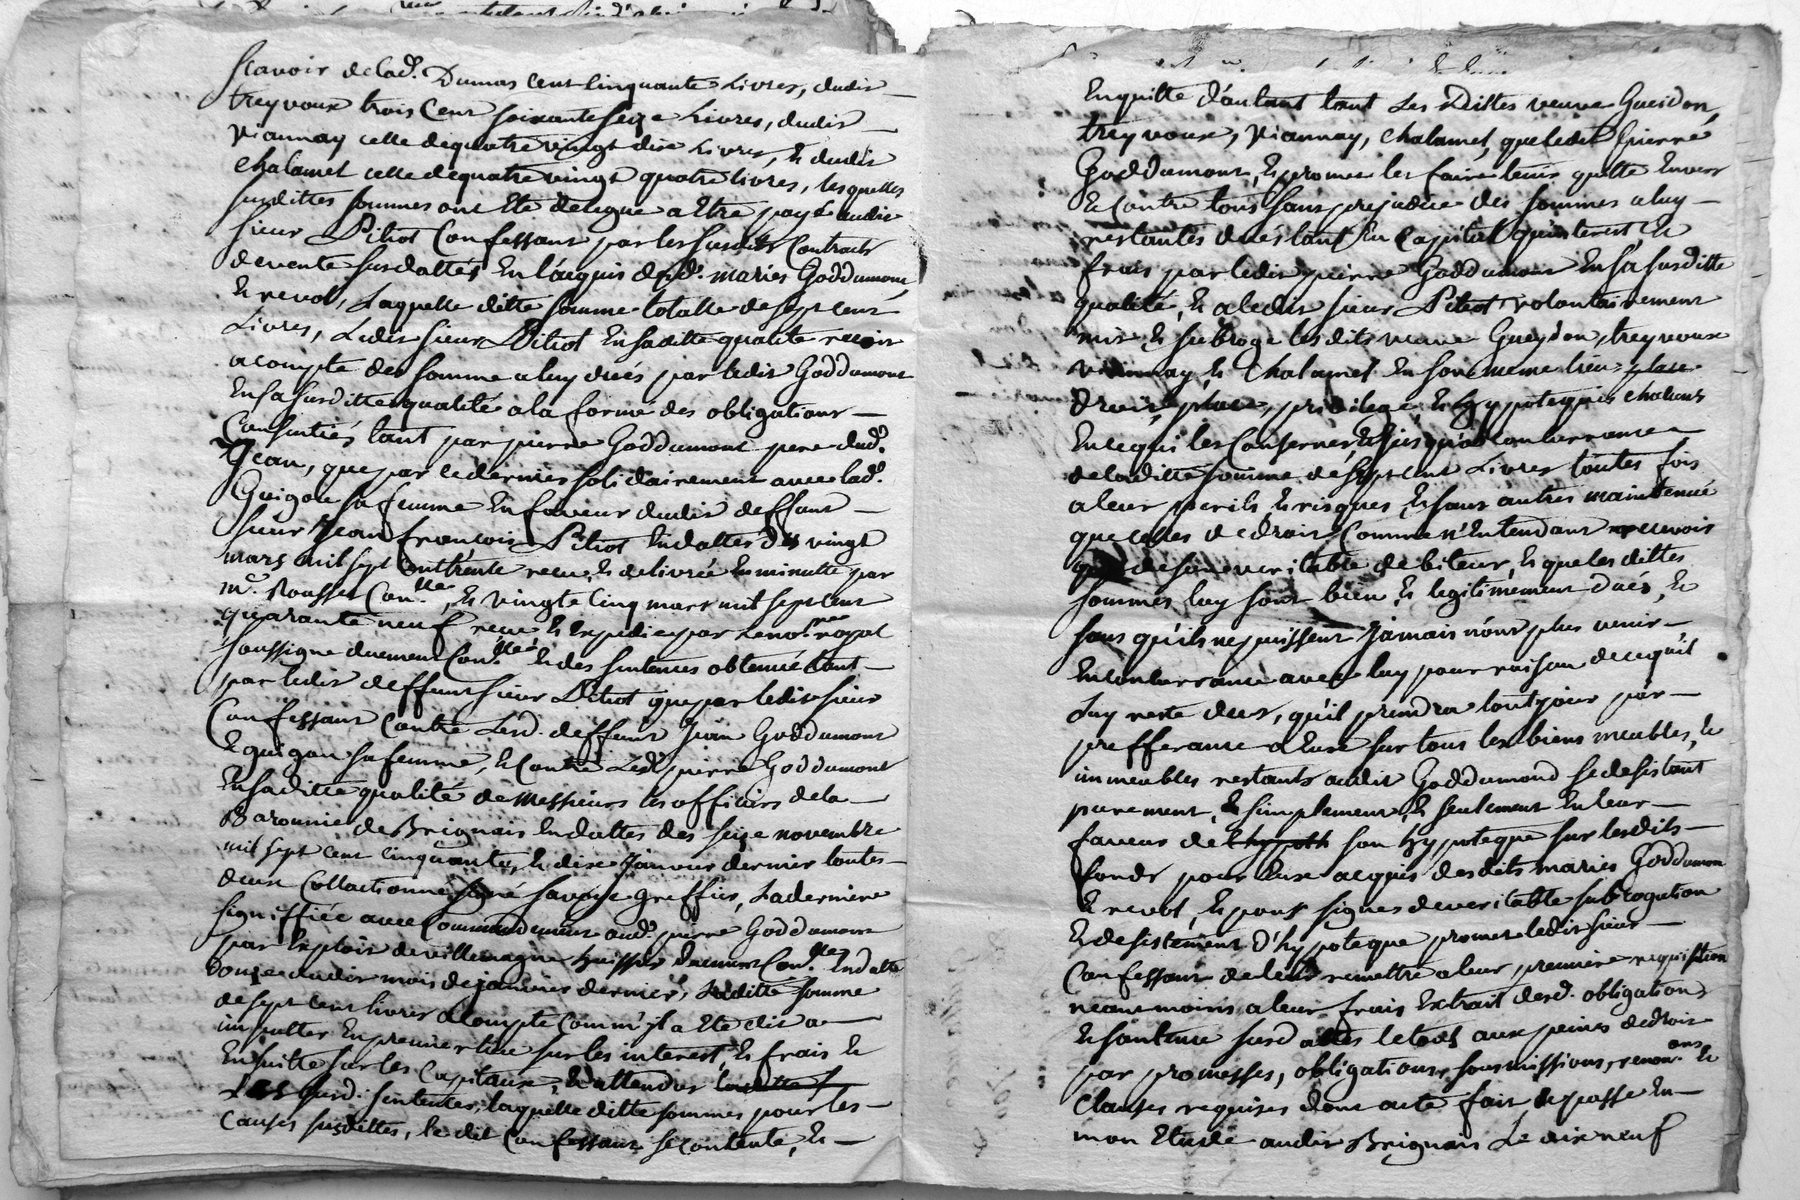 scavoir de lad. Dumas cent cinquante Livres, dudit
treyvoux trois cent soixante seize Livres, dudit
viannay celle de quatre vingt dix Livres, & dudit
chalamel celle de quatre vingt quatre livres, lesquelles
susdittes sommes ont été delegué a etre payé audit
sieur Pitiot Confessant par les susdits Contracts
de vente susdattés En l'acquis desd. mariés Goddumont
& revol, Laquelle ditte somme totalle de sept cent
Livres, Ledit sieur Pitiot En saditte qualité reçoit
a compte des somme a luy duës par ledit Goddumont
En sa susditte qualité a la forme des obligations
Consenties tant par pierre Goddumont pere dud.
Jean, que par ce dernier solidairement avec lad.
Guigou sa femme En faveur dudit deffunt
sieur Jean françois Pitiot En dattes des vingt
mars mil sept cent trente receu & delivrée En minutte par
me. Rousset Con.ller, & vingt cinq mars mil sept cent
quarante neuf receu & Expediée par Le no.re royal
soussigné duement Con.llé & des sentences obtenuë tant
par ledit deffunt sieur Pitiot que par ledit sieur
Confessant Contre Lesd. deffunt Jean Goddumont
& guigou sa femme, & Contre Led. pierre Goddumont
En saditte qualité de Messieurs les officiers de la
Baronnie de Brignais En dattes des seize novembre
mil sept cent cinquante, & dix Janvier dernier toutes
deux Collactionné signé savoye greffier, La derniere
signiffiée avec Commandement aud. pierre Goddumont
par Exploit de villemagne huissier duement Con.llé En datte
douze dudit mois de janvier dernier, Laditte somme
de sept cent livres a Compte Comm'il a Eté dit a
imputter En premier lieu sur les interest, & frais &
En suitte sur les Capitaux, & attendu
Les susd. sentences, laquelle ditte sommes pour les
causes susdittes, le dit Confessant se contente, &
En quitte d'autant tant Les Dittes veuve Gueidon,
treyvoux, viannay, chalamel, que ledit pierre
Goddumont, & promet les faire tenir quitte Envers
& Contre tous sans prejudice des sommes a luy
restantes dues tant En Capital qu'interest, &
frais par ledit pierre Goddumont En sa susditte
qualité, & a ledit sieur Pitiot volontairement
mis & subrogé lesdits veuve Gueydon, treyvoux
viannay & Chalamel En son meme lieu, place
Droit, place, privilege, & hypoteques chacuns
En ce qui les Conserne, & jusqu'a Concurrance
de laditte somme de sept cent Livres toutes fois
a leur perils & risques, & sans autres maintenuë
que celles de droit Comme n'Entendant recevoir
que de son veritable debiteur, & que les dittes
sommes luy sont bien & legitimement duës, &
sans qu'ils ne puissent Jamais non plus venir
En Concurrance avec luy pour raison de ce qu'il
Luy reste dües, qu'il prendra toutjour par
prefferance a Eux sur tous les biens meubles, &
immeubles restants audit Goddumond se desistant
purement & simplement & seulement En leur
faveur de l'hypoth son hypoteque sur lesdits
fonds pour Eux acquis desdits mariés Goddumon
& revol, & pour signes de veritable subrogation
& desistement d'hypoteque promet ledit sieur
Confessant de leur remettre a leur premiere requisition
neanmoins a leur frais Extrait desd. obligations
& sentence susd attes le tout aux peines de droit
par promesses, obligations, soumissions, renon.ons &
clauses requises dont acte fait & passé En
mon Etude audit Brignais Le dix neuf